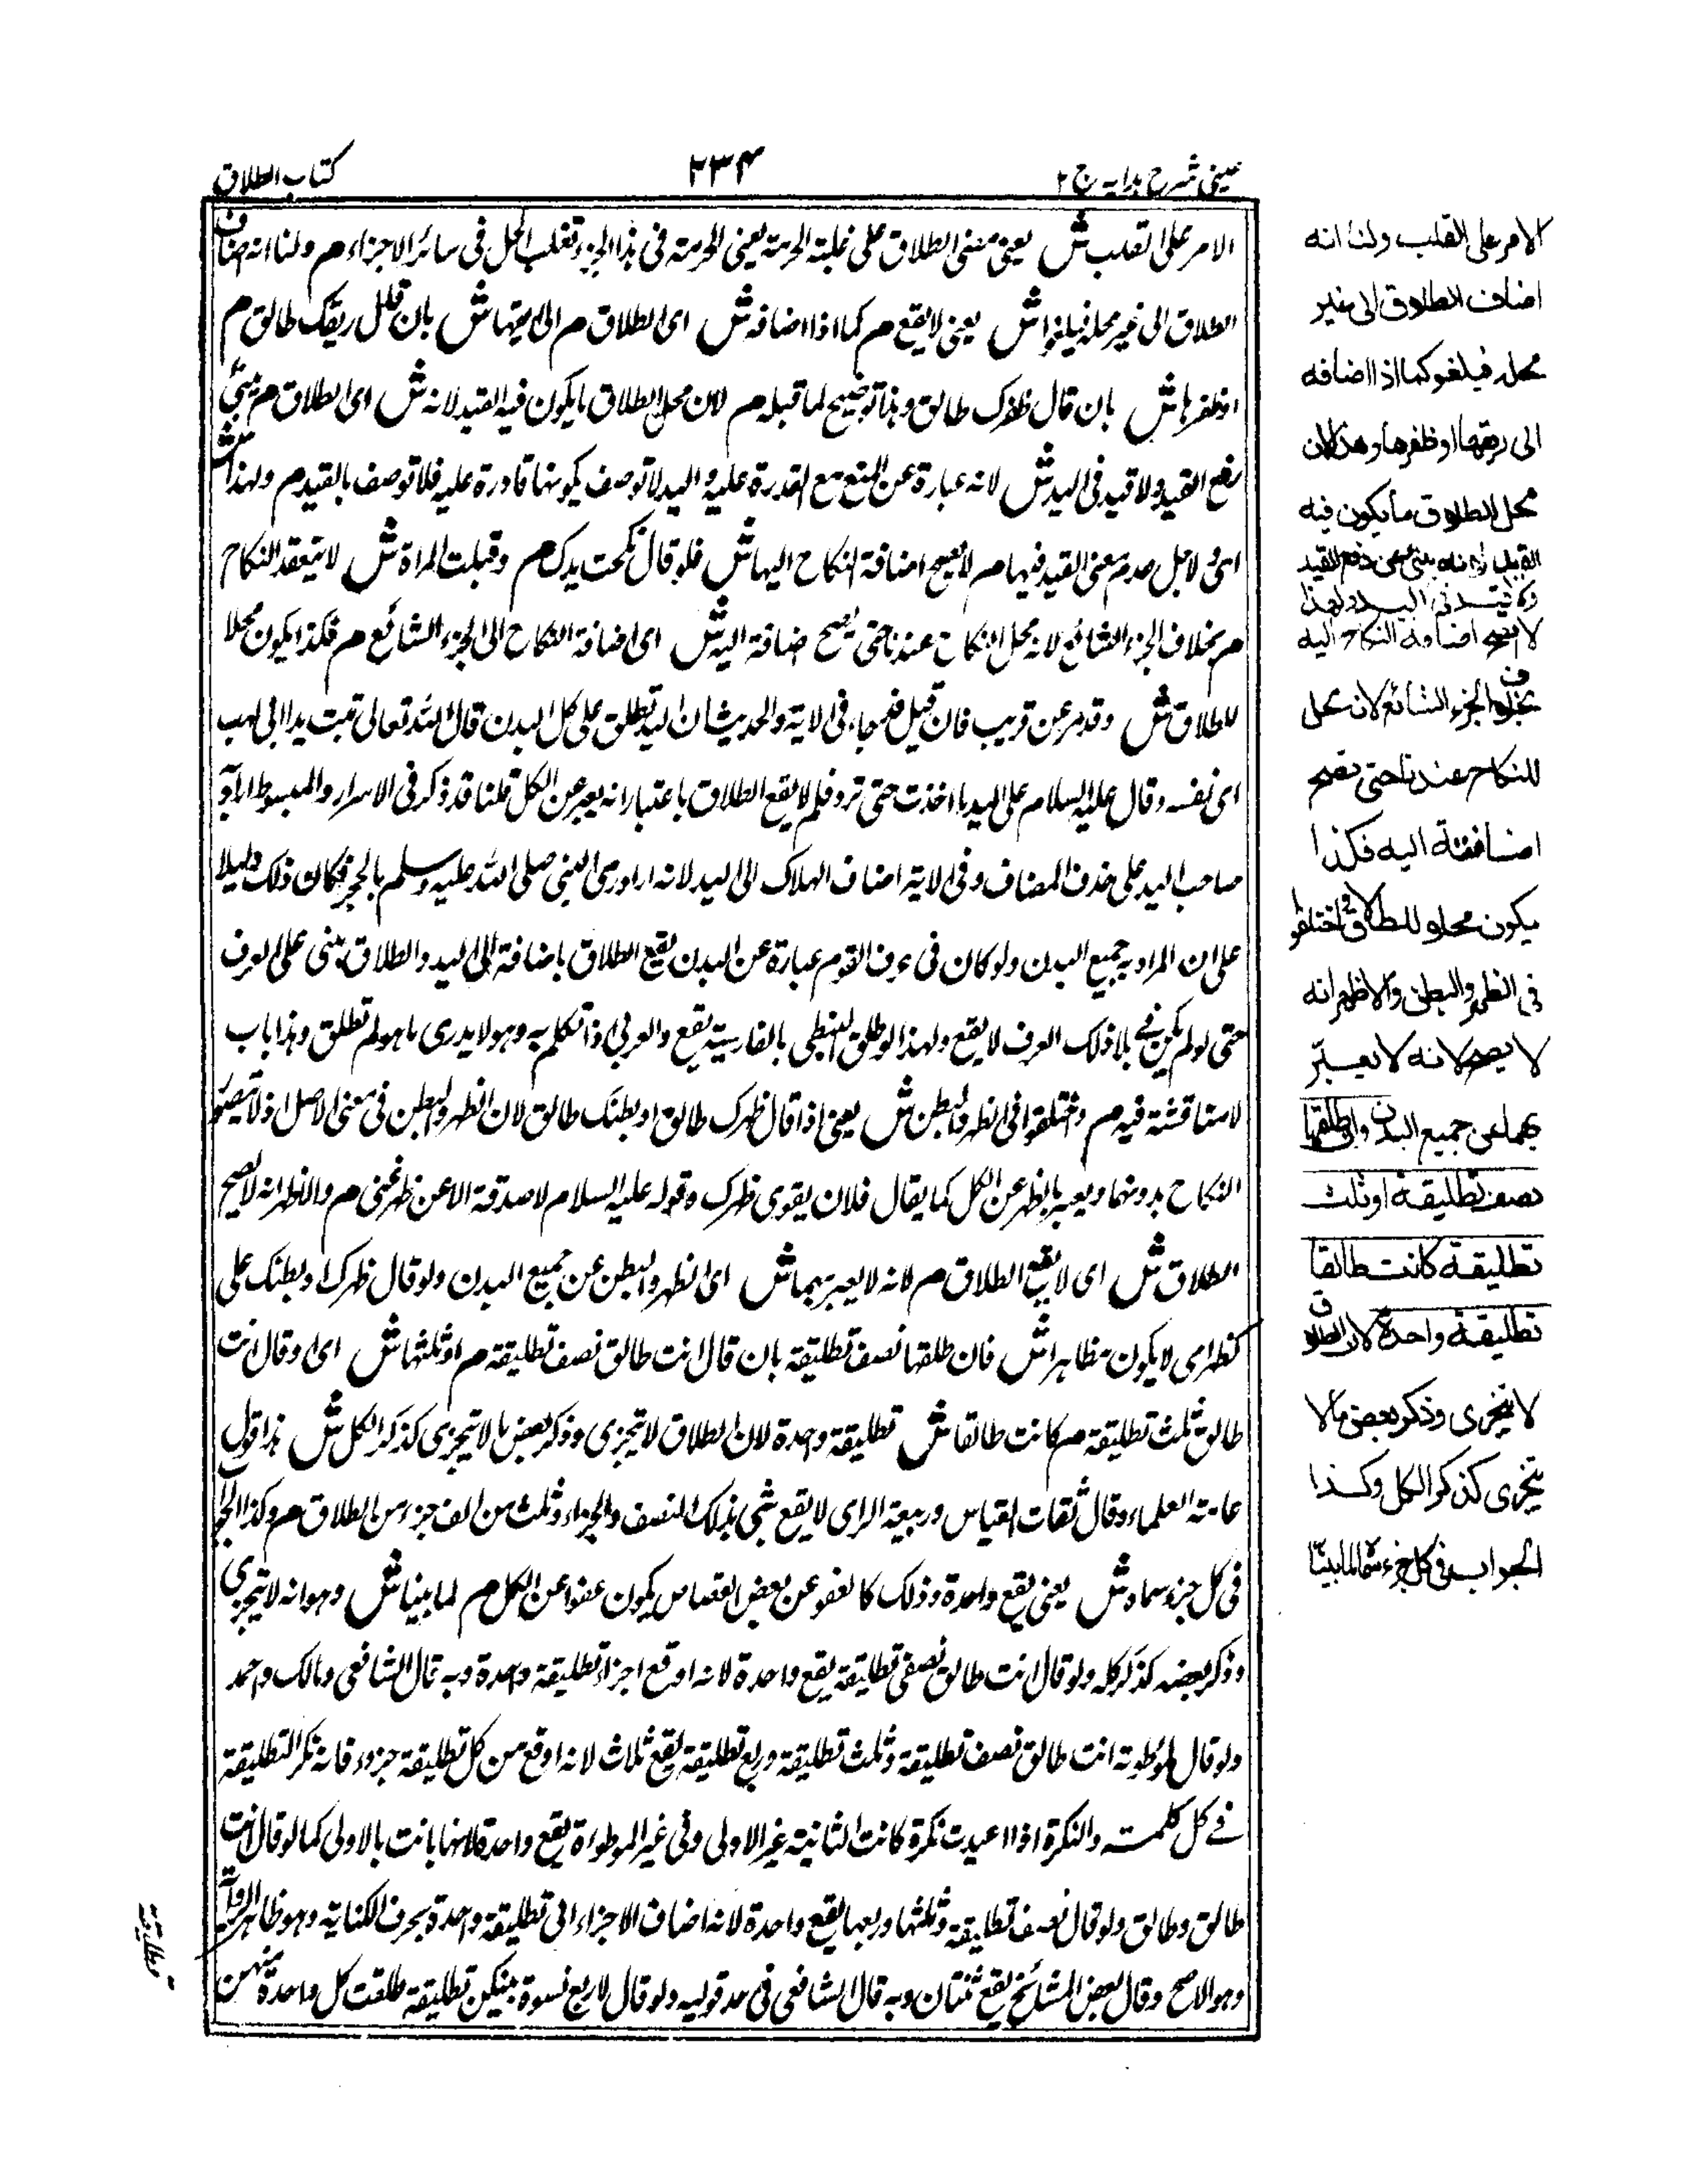 عینی شرح ہدایہ ج ۲
۲۳۴
کتاب الطلاق
الامر على القلب ش يعنى مضى الطلاق على غلبة الحرمة يعنى الحرمة فى هذا الجزء تغلب الحل فى سائر الاجزاء م ولنا انه اضاف
الطلاق الى غير محله فيلغو ش يعنى لا يقع م كما اذا اضافه ش اى الطلاق م الى ريقها ش بان قال ريقك طالق م
او ظفرها ش بان قال ظفرك طالق وهذا توضيح لما قبله م لان محل الطلاق ما يكون فيه القيد لانه ش اى الطلاق م ينبئ
رفع القيد ولا قيد فى اليد ش لانه عبارة عن المنع مع القدرة عليه واليد لا توصف بكونها قادرة عليه فلا توصف بالقيد م ولهذا ش
اى ولاجل عدم معنى القيد فيها م لا يصح اضافة النكاح اليها ش فلو قال نكحت يدك م وقبلت المراة ش لا ينعقد النكاح
م بخلاف الجزء الشائع لانه محل النكاح عندنا حتى يصح اضافة اليه ش اى اضافة النكاح الى الجزء الشائع م فكذا يكون محلا
للطلاق ش وقد مر عن قريب فان قيل فلم جاء فى الاية والحديث ان اليد تطلق على كل البدن قال الله تعالى تبت يدا ابى لهب
اى نفسه وقال عليه السلام على اليد ما اخذت حتى ترد فلم لا يقع الطلاق باعتبار انه يعبر عن الكل قلنا قد ذكر فى الاسرار والمبسوط اراد به
صاحب اليد على حذف المضاف وفى الاية اضاف الهلاك الى اليد لانه اراد رمى النبى صلى الله عليه وسلم بالحجر فكان ذلك دليلا
على ان المراد به جميع البدن ولو كان فى عرف القوم عبارة عن البدن يقع الطلاق باضافة الى اليد والطلاق يبنى على العرف
حتى لو لم يكن فى بلاد ذلك العرف لا يقع ولهذا لو طلق النبطى بالفارسية يقع والعربى اذا تكلم به وهو لا يدرى ما هو لم تطلق وهذا باب
لا مناقشة فيه م واختلفوا فى الظهر والبطن ش يعنى اذا قال ظهرك طالق او بطنك طالق لان الظهر والبطن فى معنى الاصل اذ لا يتصور
النكاح بدونهما ويعبر بالظهر عن الكل كما يقال فلان يقوى ظهرك وقوله عليه السلام لا صدقة الا عن ظهر غنى م والاظهر انه لا يصح
الطلاق ش اى لا يقع الطلاق م لانه لا يعبر بهما ش اى الظهر والبطن عن جميع البدن ولو قال ظهرك او بطنك على
كظهر امى لا يكون مظاهرا ش فان طلقها نصف تطليقة بان قال انت طالق نصف تطليقة م او ثلثها ش اى او قال انت
طالق ثلث تطليقة م كانت طالقا ش تطليقة واحدة لان الطلاق لا يتجزى وذكر بعض ما لا يتجزى كذكر الكل ش هذا قول
عامة العلماء وقال نفاة القياس وربيعة الراى لا يقع شئ بذلك النصف والجزء وثلث من الف جزء من الطلاق م وكذا الجواب
فى كل جزء سماه ش يعنى يقع واحدة وذلك كالعفو عن بعض القصاص يكون عفوا عن الكل م لما بينا ش وهو انه لا يتجزى
وذكر بعضه كذكر كله ولو قال انت طالق نصفى تطليقة يقع واحدة لانه اوقع اجزاء تطليقة واحدة وبه قال الشافعى ومالك واحمد
ولو قال لموطوءته انت طالق نصف تطليقة وثلث تطليقة وربع تطليقة يقع ثلاث لانه اوقع من كل تطليقة جزءا فانه نكر التطليقة
فى كل كلمة والنكرة اذا اعيدت نكرة كانت الثانية غير الاولى وفى غير الموطواة يقع واحدة لانها بانت بالاولى كما لو قال انت
طالق وطالق ولو قال نصف تطليقة وثلثها وربعها يقع واحدة لانه اضاف الاجزاء الى تطليقة واحدة بحرف الكناية وهو ظاهر الرواية
وهو الاصح وقال بعض المشائخ يقع ثنتان وبه قال الشافعى فى احد قوليه ولو قال لاربع نسوة بينكن تطليقة طلقت كل واحدة منهن
الامر على القلب ولنا انه
اضاف الطلاق الى غير
محله فيلغو كما اذا اضافه
الى ريقها او ظفرها وهذا لان
محل الطلاق ما يكون فيه
القيد لانه ينبئ عن رفع القيد
ولا قيد فى اليد ولهذا
لا يصح اضافة النكاح اليه
بخلاف الجزء الشائع لانه محل
للنكاح عندنا حتى تصح
اضافته اليه فكذا
يكون محلا للطلاق واختلفوا
فى الظهر والبطن والاظهر انه
لا يصح لانه لا يعبر
بهما عن جميع البدن وان طلقها
نصف تطليقة او ثلث
تطليقة كانت طالقا
تطليقة واحدة لان الطلاق
لا يتجزى وذكر بعض ما لا
يتجزى كذكر الكل وكذا
الجواب فى كل جزء سماه لما بينا